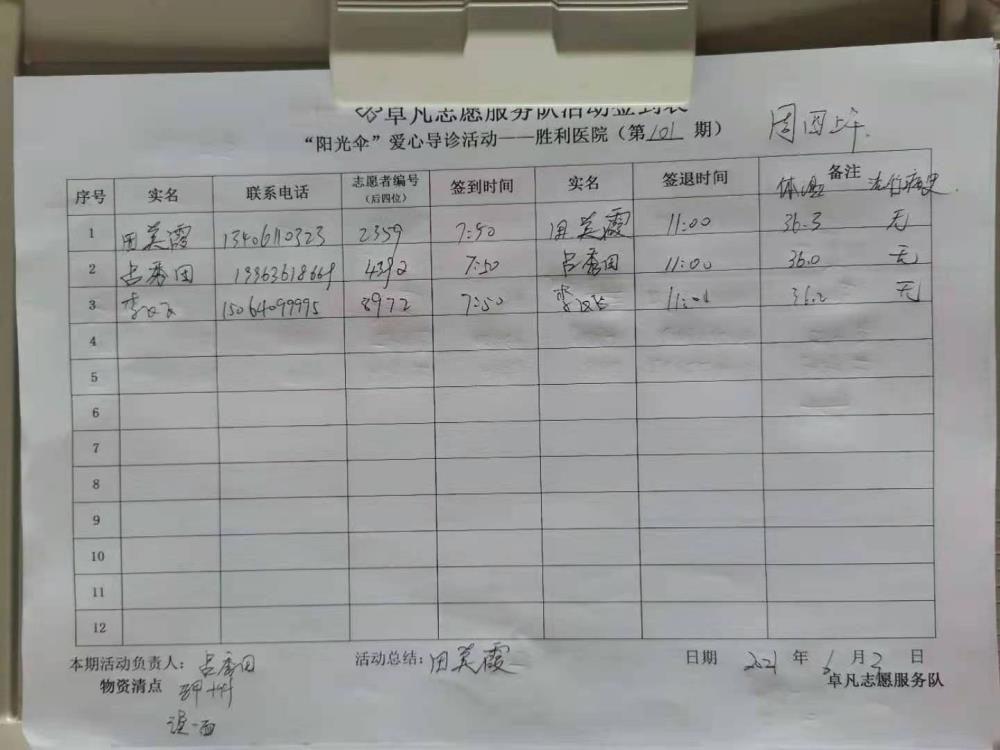 卓凡志愿服务队活动签到表
“阳光伞”爱心导诊活动——胜利医院（第101期）
周四上午.
序号 实名 联系电话 志愿者编号（后四位） 签到时间 实名 签退时间 备注 体温 流行病史
1 田美霞 13406110323 2359 7:50 田美霞 11:00 36.3 无
2 吕秀田 4392 7:50 吕秀田 11:00 36.0 无
3 李 15064099995 8972 7:50 李 11:01 36.2 无
4
5
6
7
8
9
10
11
12
本期活动负责人：吕秀田 活动总结：田美霞 日期 2021 年 6 月 日
物资清点 卓凡志愿服务队